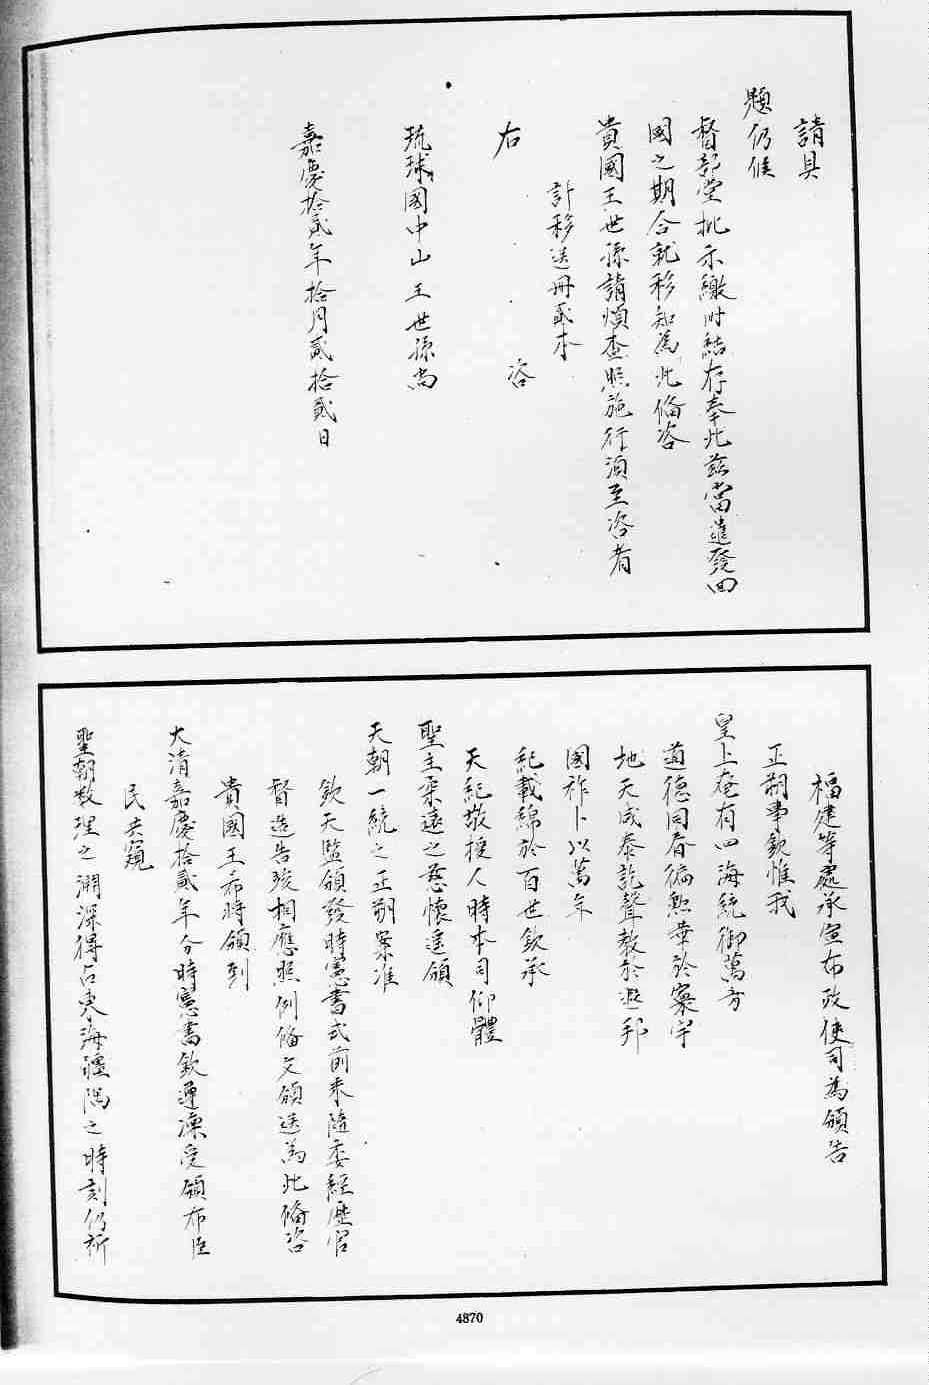 請具
題仍候
督部堂批示繳册結存奉此茲當遣發回
國之期合就移知為此備咨
貴國王世孫請煩查照施行須至咨者
計移送册貳本
右咨
琉球國中山王世孫尚
嘉慶拾貳年拾月貳拾貳日
福建等處承宣布政使司為頒告
正朔事欽惟我
皇上奄有四海統御萬方
道德同春徧勲華於寰宇
地天成泰訖聲教於遐邦
國祚卜以萬年
紀載綿於百世欽承
天紀敬授人時本司仰體
聖主柔遠之慈懷遙頒
天朝一統之正朔案准
欽天監頒發時憲書式前來隨委經歷官
督造告竣相應照例備文頒送為此備咨
貴國王希將頒到
大清嘉慶拾貳年分時憲書欽遵凜受頒布臣
民共窺
聖朝敬理之淵深得占東海疆隅之時刻仍祈
4870